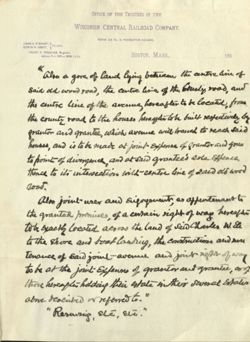 OFFICE OF THE TRUSTEES OF THE
WISCONSIN CENTRAL RAILROAD COMPANY.
BOSTON, MASS.
"Also a gore of land lying between the centre line of
said old wood road, the centre line of the county road, and
the centre line of the avenue, hereafter to be located, from
the county road to the houses hereafter to be built respectively by
grantor and grantee, which avenue will branch to reach said
houses, and is to be made at joint expense of grantor and grantee
to point of divergence, and at said grantee's sole expense
thence to its intersection with centre line of said old wood
road."
Also joint uses and enjoyments, as appurtenant to
the granted premises, of a certain right of way hereafter
to be exactly located across the land of said Charles W.
to the shore and boat landing, the constructions and main
tenance of said joint avenue and joint right of way
to be at the joint expense of grantor and grantee, or of
those hereafter holding their estate in their several estates
above described or referred to."
"Reserving, etc, etc."